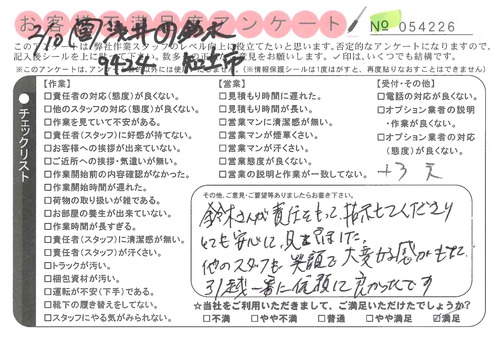 お客様満足度アンケート
№ 054226
2/10
9424 知立市
このアンケートは、弊社作業スタッフのレベル向上に役立てたいと思います。否定的なアンケートになりますので、
記入後シールを上に
をお願いします。✓印は、いくつでも結構です。
※このアンケートは、
以外には使用
(※情報保護シールは1度はがすと、再度貼りなおすことはできません)
チェックリスト
【作業】
□責任者の対応(態度)が良くない。
□他のスタッフの対応(態度)が良くない。
□作業を見ていて不安がある。
□責任者(スタッフ)に好感が持てない。
□お客様への挨拶が出来ていない。
□ご近所への挨拶・気遣いが無い。
□作業開始前の内容確認がなかった。
□作業開始時間が遅れた。
□荷物の取り扱いが雑である。
□お部屋の養生が出来ていない。
□作業時間が長すぎる。
□責任者(スタッフ)に清潔感が無い。
□責任者(スタッフ)が汗くさい。
□トラックが汚い。
□梱包資材が汚い。
□運転が不安(下手)である。
□靴下の履き替えをしてない。
□スタッフにやる気がみられない。
【営業】
□見積もり時間に遅れた。
□見積もり時間が長い。
□営業マンに清潔感が無い。
□営業マンが煙草くさい。
□営業マンが汗くさい。
□営業態度が良くない。
□営業の説明と作業が一致してない。
【受付・その他】
□電話の対応が良くない。
□オプション業者の説明
・作業が良くない。
□オプション業者の対応
(態度)が良くない。
+3
その他、ご意見・ご要望等ありましたらお書き下さい。
鈴木さんが責任をもって、指示してくださり
とても安心して、見ま
他のスタッフも笑顔で大変な感
引越一番に依頼して良かったです
☆当社をご利用いただきまして、ご満足いただけたでしょうか?
□不満 □やや不満 □普通 □やや満足 ☑満足